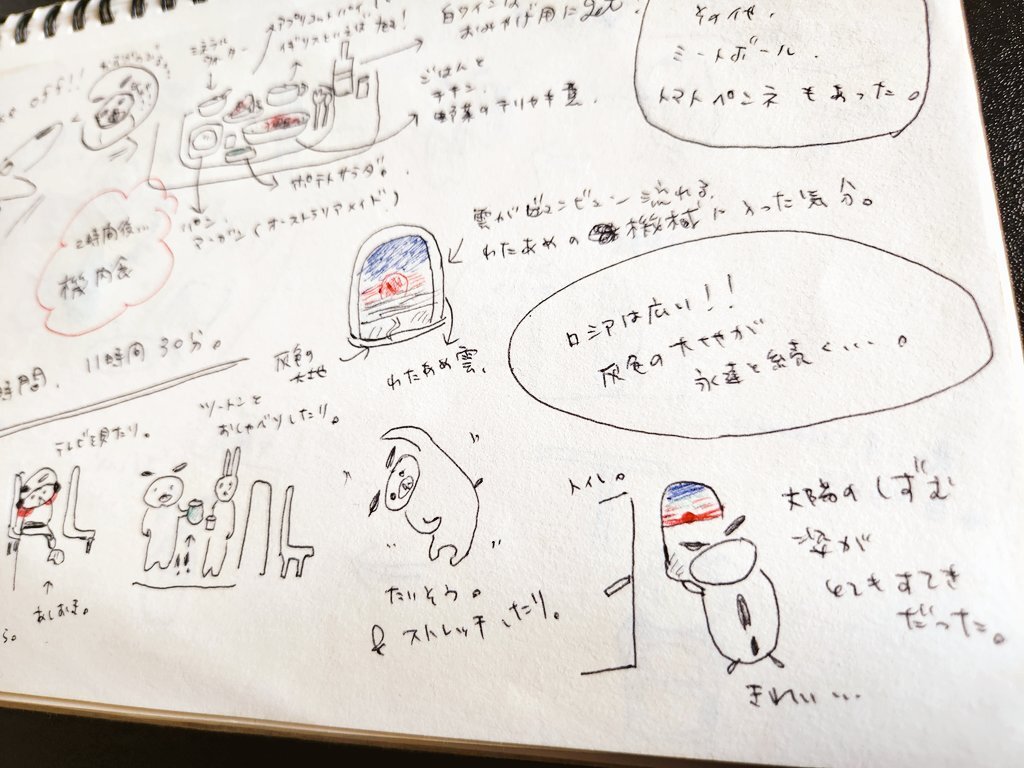 e off!!
ミネラル
ウォーター
白ワインは
おみやげ用にget!
ごはんと
チキン、
野菜のテリヤキ煮。
その他、
ミートボール、
トマトペンネもあった。
ポテトサラダ。
パン
マーガリン(オーストラリアメイド)
2時間後…
機内食
時間、11時間30分。
雲がビュンビュン流れる。
わたあめの機械に入った気分。
灰色の
大地
わたあめ雲。
ロシアは広い!!
灰色の大地が
永遠と続く…。
テレビを見たり。
あしおき。
ら。
ツートンと
おしゃべりしたり。
たいそう。
& ストレッチしたり。
トイレ。
太陽のしずむ
姿が
とてもすてき
だった。
きれい…